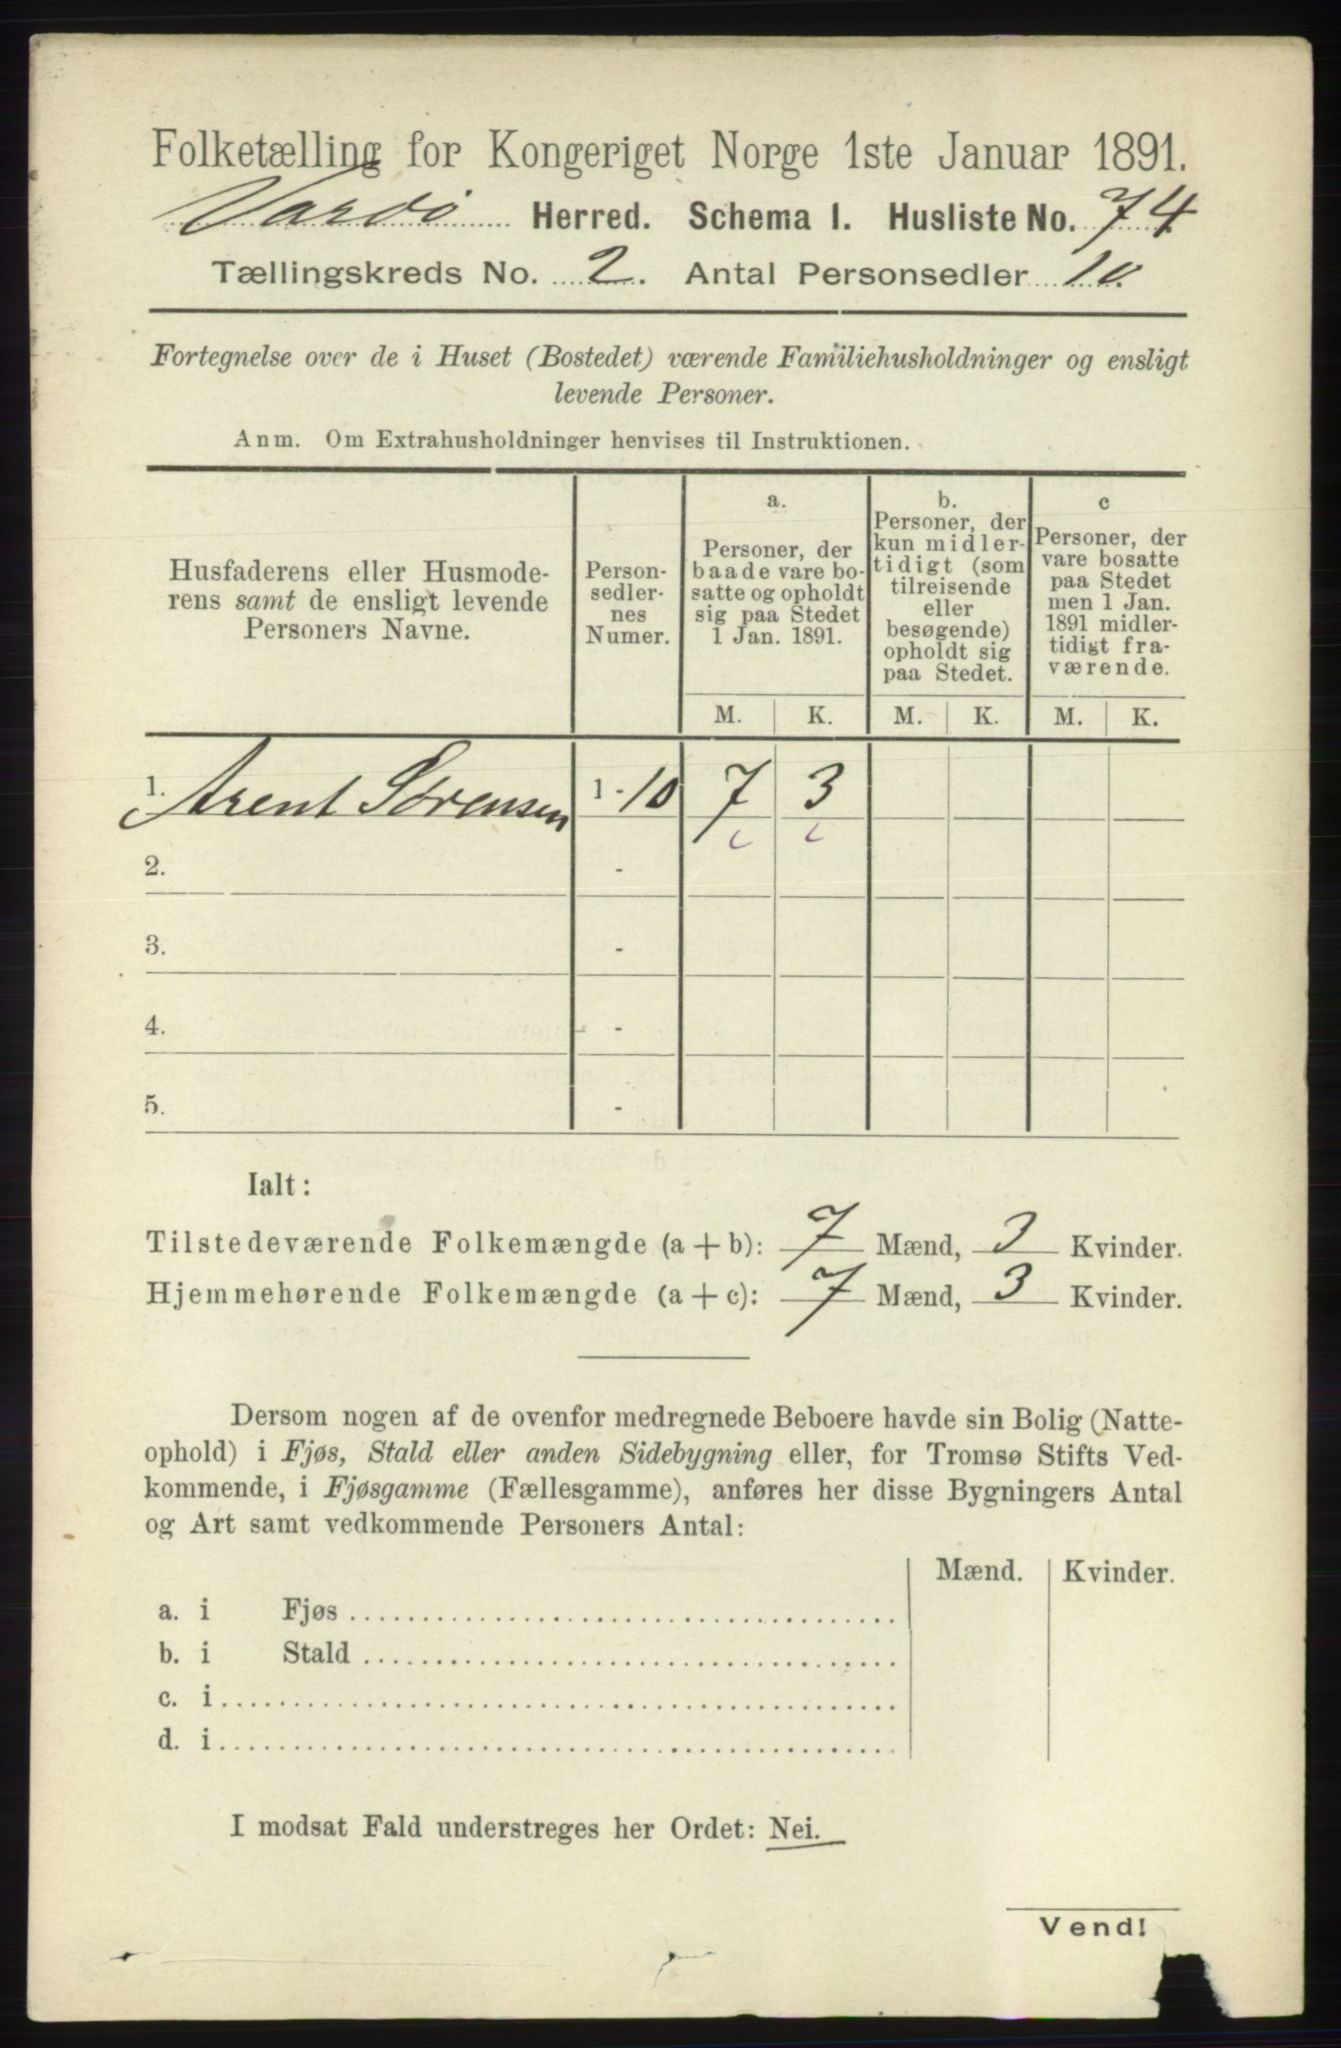 Folketælling for Kongeriget Norge 1ste Januar 1891.
Vardø Herred. Schema 1. Husliste No. 74
Tællingskreds No. 2. Antal Personsedler 10.
Fortegnelse over de i Huset (Bostedet) værende Familiehusholdninger og ensligt
levende Personer.
Anm. Om Extrahusholdninger henvises til Instruktionen.
Husfaderens eller Husmode-
rens samt de ensligt levende
Personers Navne.
Person-
sedler-
nes
Numer.
a.
Personer, der
baade vare bo-
satte og opholdt
sig paa Stedet
1 Jan. 1891.
b.
Personer, der
kun midler-
tidigt (som
tilreisende
eller
besøgende)
opholdt sig
paa Stedet.
c
Personer, der
vare bosatte
paa Stedet
men 1 Jan.
1891 midler-
tidigt fra-
værende.
M. K. M. K. M. K.
1. Arent Sørensen 1 - 10 7 3
2. -
3. -
4. -
5. -
Ialt:
Tilstedeværende Folkemængde (a + b): 7 Mænd, 3 Kvinder.
Hjemmehørende Folkemængde (a + c): 7 Mænd, 3 Kvinder.
Dersom nogen af de ovenfor medregnede Beboere havde sin Bolig (Natte-
ophold) i Fjøs, Stald eller anden Sidebygning eller, for Tromsø Stifts Ved-
kommende, i Fjøsgamme (Fællesgamme), anføres her disse Bygningers Antal
og Art samt vedkommende Personers Antal:
Mænd. Kvinder.
a. i Fjøs
b. i Stald
c. i
d. i
I modsat Fald understreges her Ordet: Nei.
Vend!